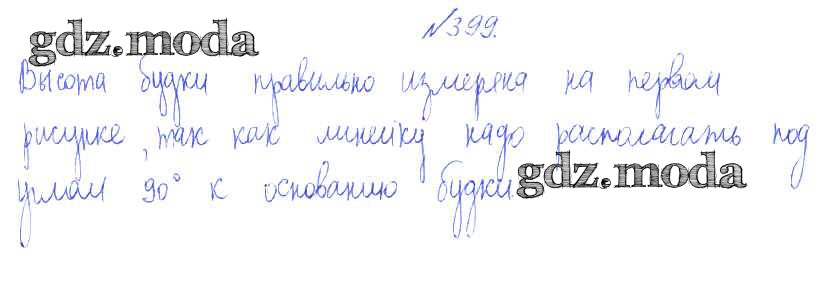 №399.
gdz.moda
Высота будки правильно измерена на первом
рисунке, так как линейку надо располагать под
углом 90° к основанию будки.
gdz.moda